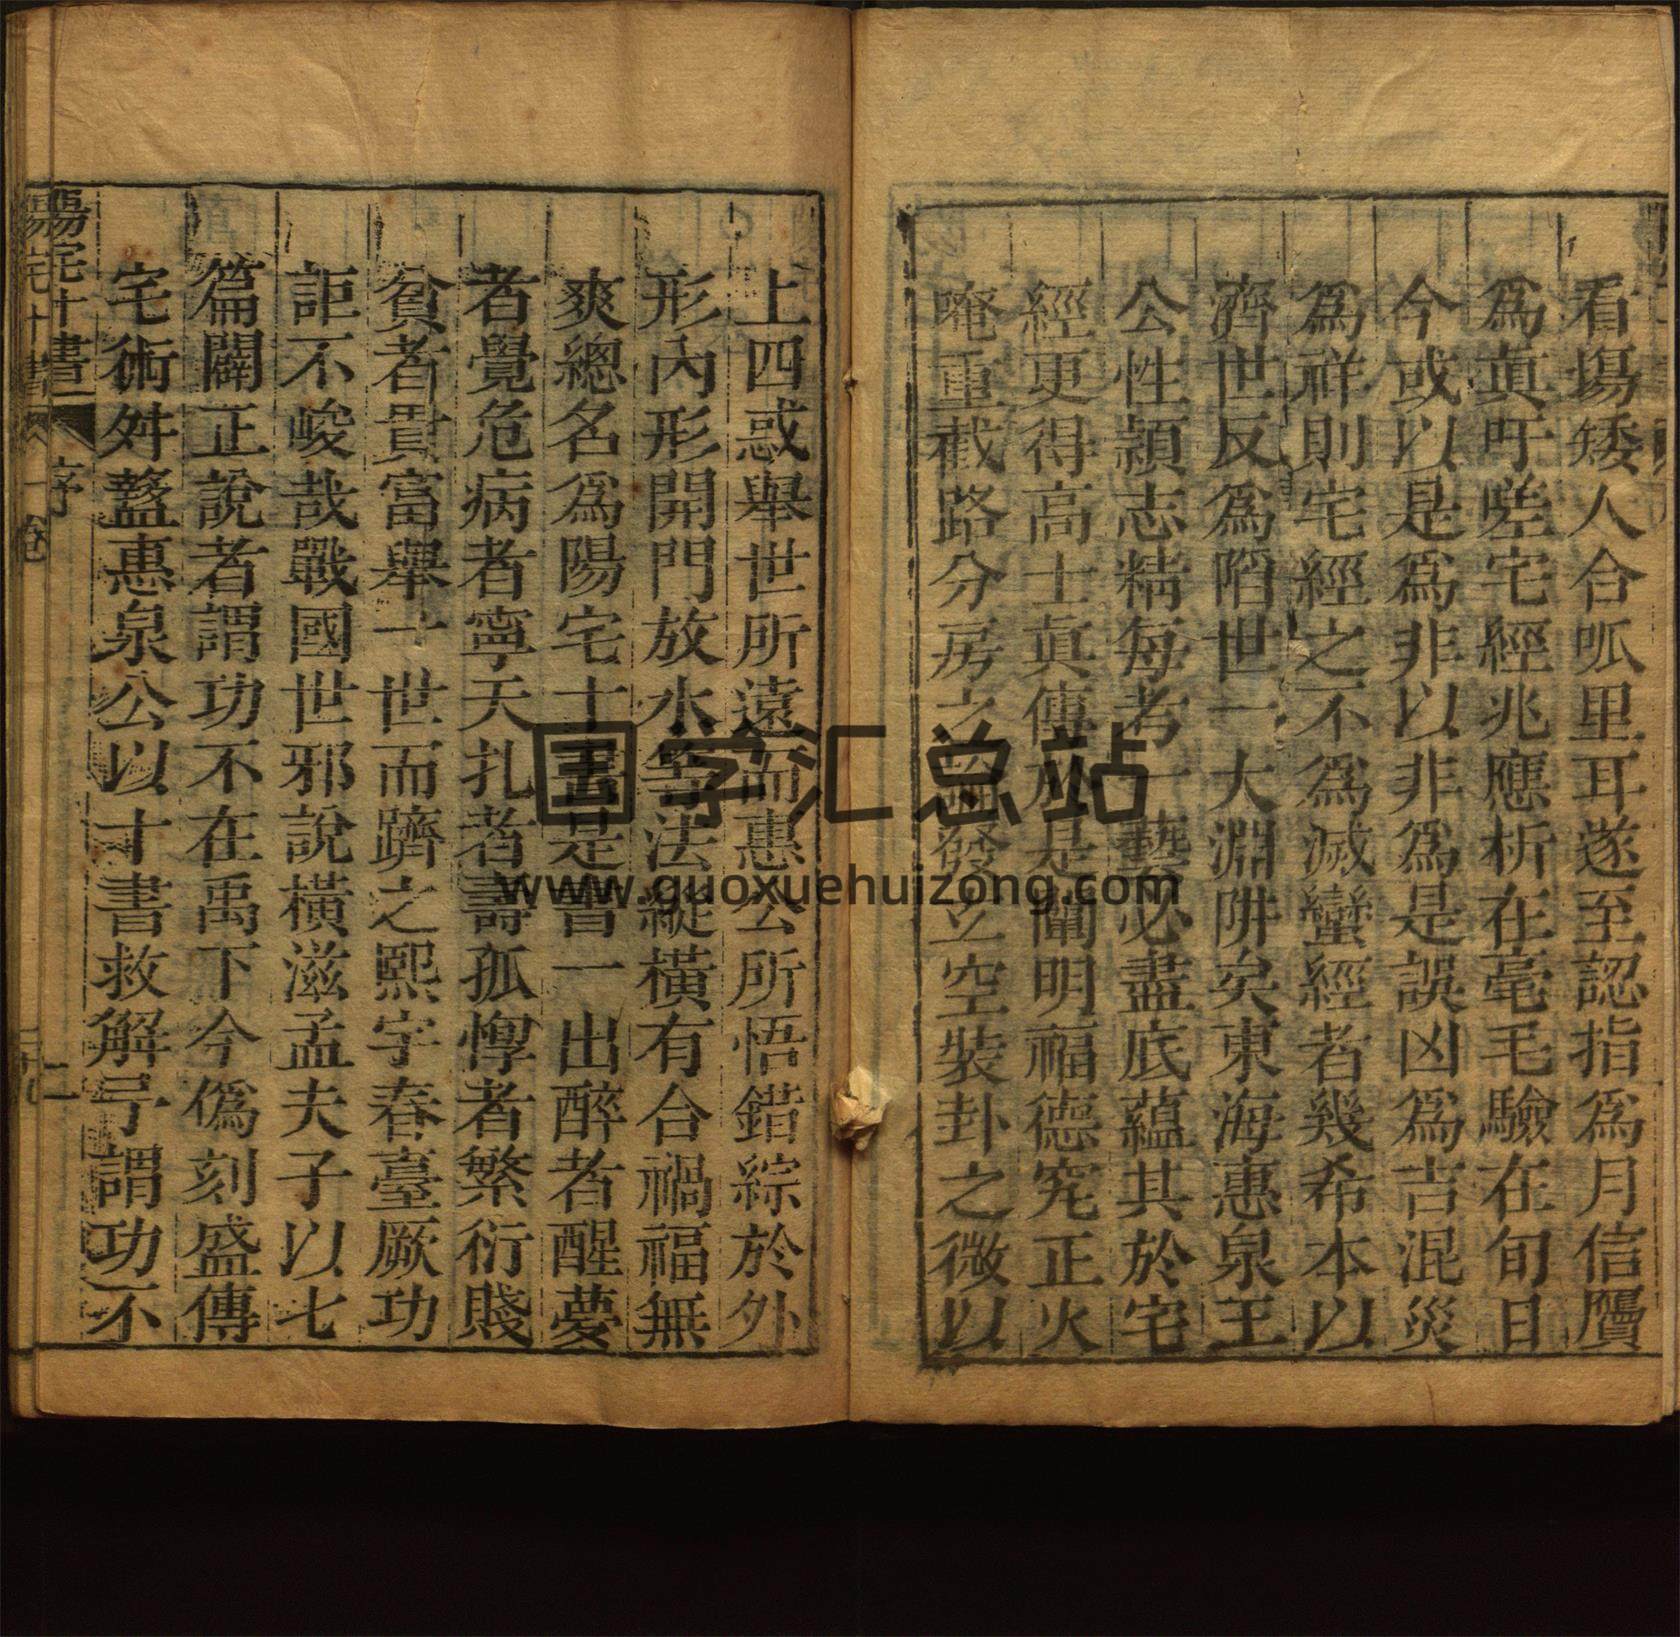 看場矮人合呱里耳遂至認指為月信贋
為眞吁嗟宅經兆應析在毫毛驗在旬日
今或以是為非以非為是誤凶為吉混災
為祥則宅經之不為滅蠻經者幾希本以
濟世反為陷世一大淵阱矣東海惠泉王
公性頴志精每考一藝必盡底蘊其於宅
經更得高士眞傳於是闡明福德究正火
唵重截路分房之論發立空裝卦之微以
上四惑舉世所遠而惠公所悟錯綜於外
形內形開門放水等法縱橫有合禍福無
爽總名為陽宅十書是書一出醉者醒夢
者覺危病者寧天扎者壽孤惸者繁衍賤
貧者貴富舉一世而躋之熙宇春臺厥功
詎不峻哉戰國世邪說橫滋孟夫子以七
篇闢正說者謂功不在禹下今僞刻盛傳
宅術舛盭惠泉公以十書救解之謂功不
陽宅十書 序 二
陽宅十書 一卷
国学汇总站
www.guoxuehuizong.com